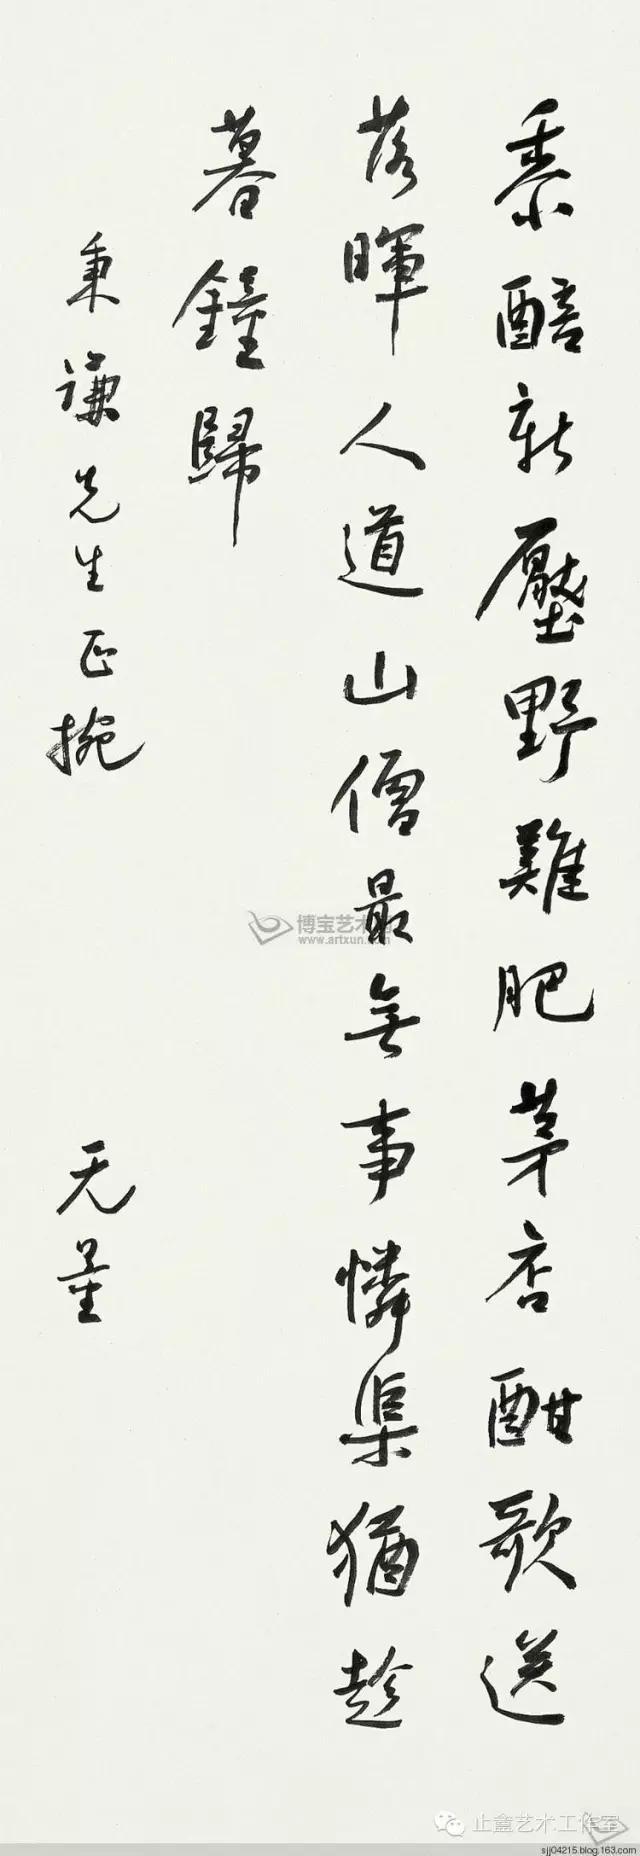 黍醅新壓野雞肥茅店酣歌送
落暉人道山僧最無事憐渠猶趁
暮鐘歸
秉謙先生正捥
无量
博宝艺术网
www.artxun.com
止盦艺术工作室
sjj04215.blog.163.com